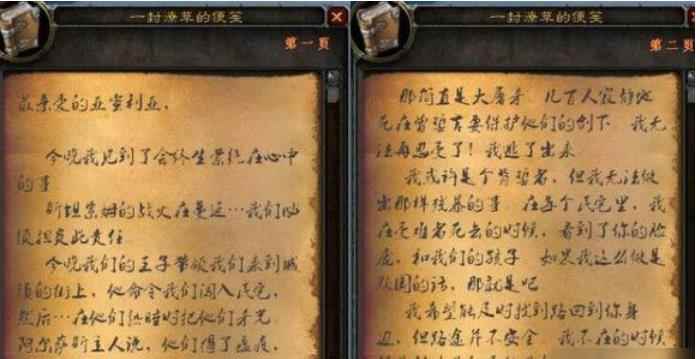 一封潦草的便笺
第一页
最亲爱的亚蕾利亚,
今晚我见到了会终生萦绕在心中
的事
斯坦索姆的战火在蔓延…我们必
须担负此责任
今晚我们的王子带领我们来到城
镇的街上,他命令我们闯入民宅,
然后…在他们熟睡时把他们杀光
阿尔萨斯主人说,他们得了瘟疫,
一封潦草的便笺
第二页
那简直是大屠杀 几百人寂静地
死在曾骄言要保护他们的剑下 我无
法再忍受了!我逃了出来
我或许是个背誓者,但我无法做
出那样残暴的事 在每个民宅里,我
在受难者死去的时候,看到了你的脸
庞,和我们的孩子 如果我这么做是
叛国的话,那就是吧
我希望能及时找到路回到你身
边,但路途并不安全 我不在的时候